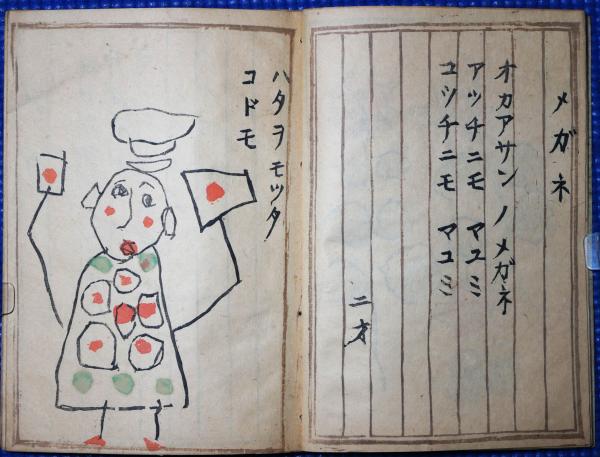 メガネ
オカアサン ノ メガネ
アッチニモ マユミ
コッチニモ マユミ
二才
ハタヲモッタ
コドモ